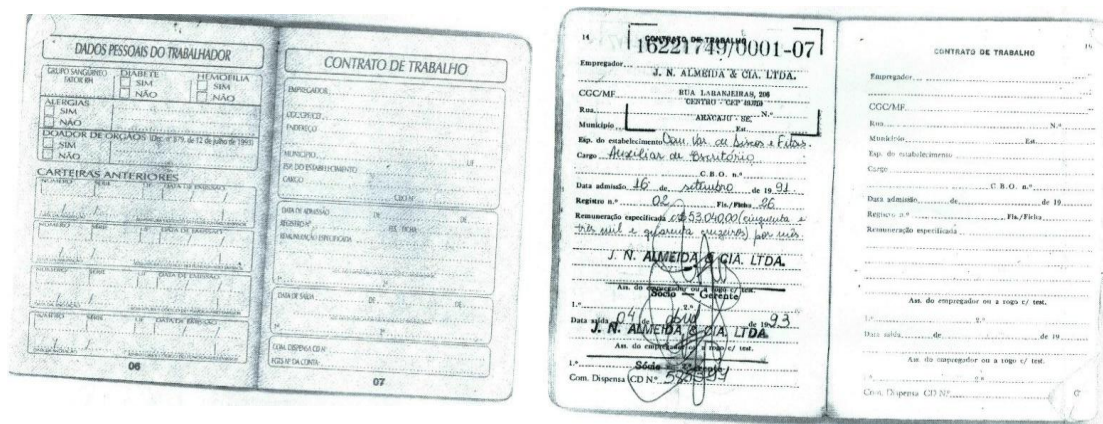 DADOS PESSOAIS DO TRABALHADOR
GRUPO SANGÜÍNEO
FATOR RH
DIABETE
SIM
NÃO
HEMOFILIA
SIM
NÃO
ALERGIAS
SIM
NÃO
DOADOR DE ÓRGÃOS (Dec. nº 879, de 12 de julho de 1993)
SIM
NÃO
CARTEIRAS ANTERIORES
NÚMERO SÉRIE UF DATA DE EMISSÃO
NÚMERO SÉRIE UF DATA DE EMISSÃO
NÚMERO SÉRIE UF DATA DE EMISSÃO
NÚMERO SÉRIE UF DATA DE EMISSÃO
06
CONTRATO DE TRABALHO
EMPREGADOR
ENDEREÇO
MUNICÍPIO UF
ESP. DO ESTABELECIMENTO
CARGO
CBO Nº
DATA DE ADMISSÃO DE DE
REGISTRO Nº FLS. / FICHA
REMUNERAÇÃO ESPECIFICADA
1º 2º
DATA DE SAÍDA DE DE
1º 2º
COM. DISPENSA CD Nº
FGTS Nº DA CONTA
07
14
CONTRATO DE TRABALHO
16221749/0001-07
Empregador
J. N. ALMEIDA & CIA. LTDA.
CGC/MF
RUA LARANJEIRAS, 206
CENTRO - CEP
Rua N.º
ARACAJU - SE.
Município Est
Esp. do estabelecimento Com. Var. de Discos e Fitas.
Cargo Auxiliar de Escritório
C.B.O. n.º
Data admissão 16 de setembro de 1991
Registro n.º 02 Fls./Ficha 26
Remuneração especificada Cr$ 53.040,00 (cinquenta e
três mil e quarenta cruzeiros) por mês.
J. N. ALMEIDA & CIA. LTDA.
Ass. do empregador ou a rogo c/ test.
Sócio Gerente
1.º 2.º
Data saída 04 de abril de 1993
J. N. ALMEIDA & CIA. LTDA
Ass. do empregador ou a rogo c/ test.
1.º Sócio Gerente
Com. Dispensa CD N.º
CONTRATO DE TRABALHO
15
Empregador
CGC/MF
Rua N.º
Município Est
Esp. do estabelecimento
Cargo
C.B.O. n.º
Data admissão de de 19
Registro n.º Fls./Ficha
Remuneração especificada
Ass. do empregador ou a rogo c/ test.
1.º 2.º
Data saída de de 19
Ass. do empregador ou a rogo c/ test.
1.º 2.º
Com. Dispensa CD N.º